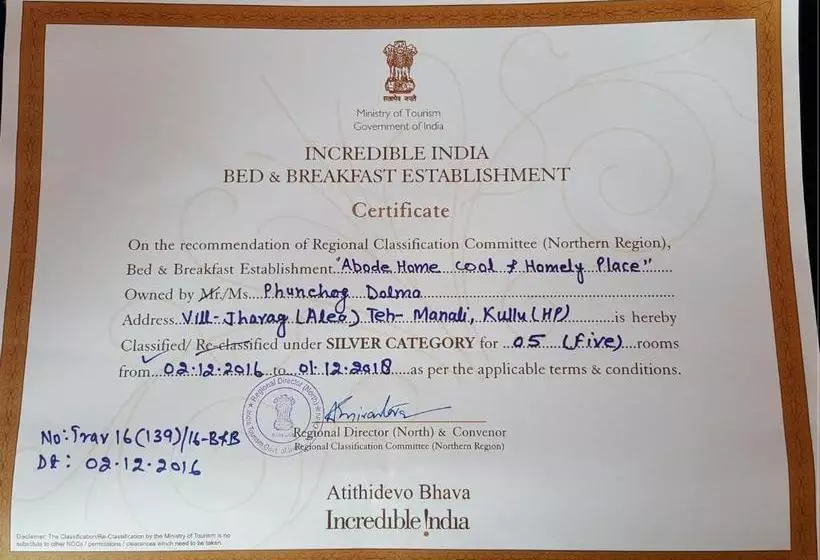 सत्यमेव जयते
Ministry of Tourism
Government of India
INCREDIBLE INDIA
BED & BREAKFAST ESTABLISHMENT
Certificate
On the recommendation of Regional Classification Committee (Northern Region),
Bed & Breakfast Establishment "Abode Home cool & Homely Place"
Owned by Mr./Ms. Phunchog Dolma
Address Vill- Jharag (Aleo) Teh- Manali, Kullu (HP) is hereby
Classified/ Re-classified under SILVER CATEGORY for 05 (five) rooms
from 02.12.2016 to 01.12.2018 as per the applicable terms & conditions.
Regional Director (North) & Convenor
Regional Classification Committee (Northern Region)
No: Trav 16(139)/16-B&B
Dt: 02.12.2016
Atithidevo Bhava
Incredible !ndia
Disclaimer: The Classification/Re-Classification by the Ministry of Tourism is no
substitute to other NOCs / permissions / clearances which need to be taken.